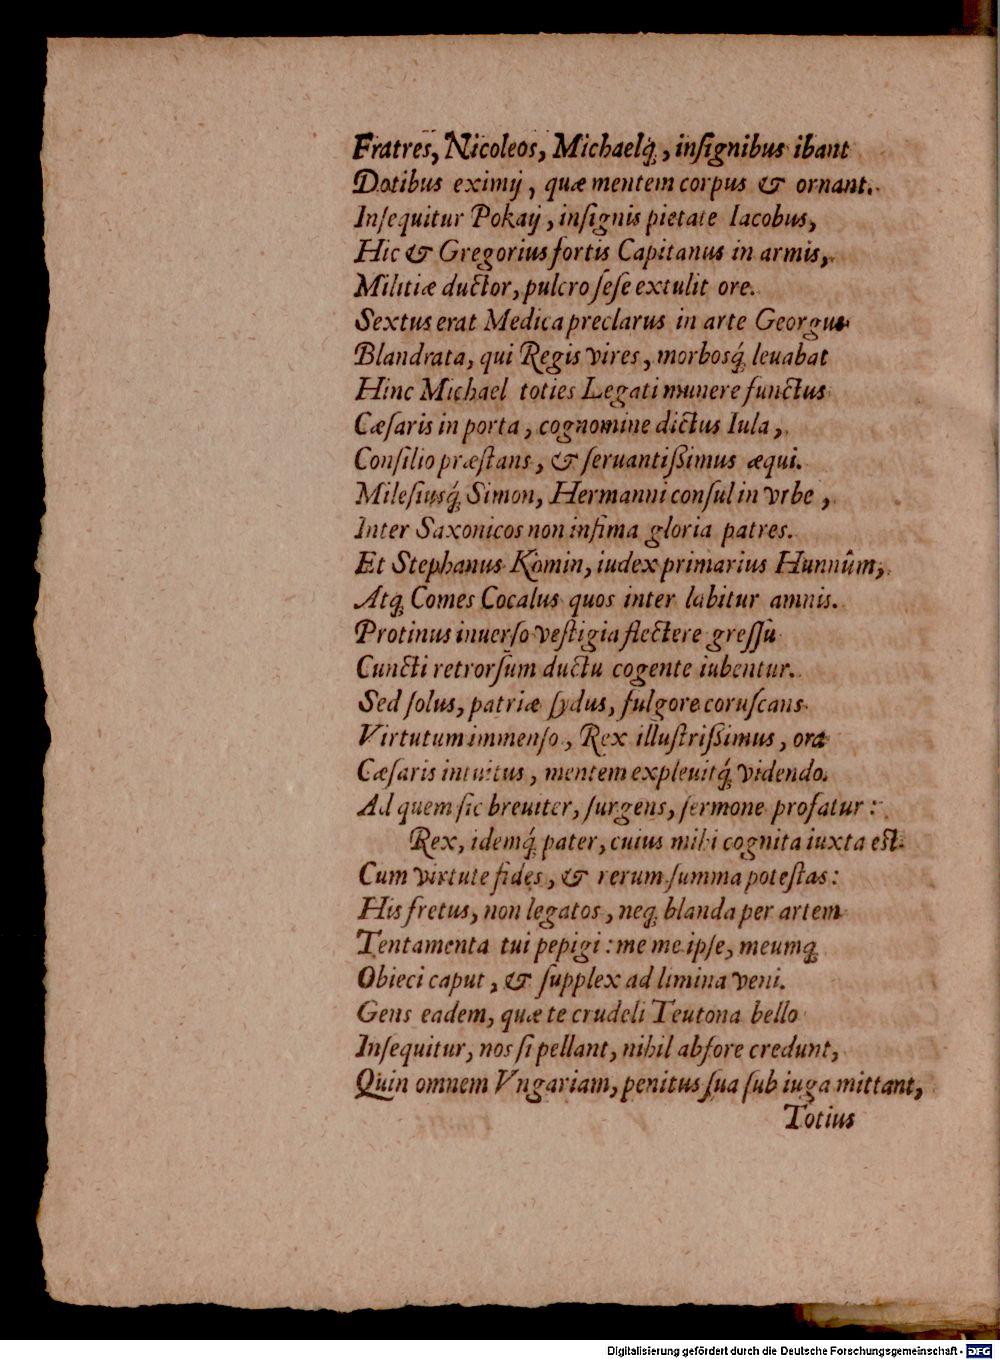 Fratres, Nicoleos, Michaelq́;, inſignibus ibant
Dotibus eximij, quæ mentem corpus & ornant.
Inſequitur Pokaij, inſignis pietate Iacobus,
Hic & Gregorius fortis Capitanus in armis,
Militiæ ductor, pulcro ſeſe extulit ore.
Sextus erat Medica preclarus in arte Georgus
Blandrata, qui Regis vires, morbosq́; leuabat
Hinc Michael toties Legati munere functus
Cæſaris in porta, cognomine dictus Iula,
Conſilio præſtans, & ſeruantißimus æqui.
Mileſiusq́; Simon, Hermanni conſul in vrbe,
Inter Saxonicos non infima gloria patres.
Et Stephanus Komin, iudex primarius Hunnûm,
Atq; Comes Cocalus quos inter labitur amnis.
Protinus inuerſo veſtigia flectere greſſu
Cuncti retrorſum ductu cogente iubentur.
Sed ſolus, patriæ ſydus, fulgore coruſcans
Virtutum immenſo, Rex illuſtrißimus, ora
Cæſaris intuitus, mentem expleuitq́; videndo.
Ad quem ſic breuiter, ſurgens, ſermone profatur:
Rex, idemq́; pater, cuius mihi cognita iuxta est
Cum virtute fides, & rerum ſumma poteſtas:
His fretus, non legatos, neq; blanda per artem
Tentamenta tui pepigi: me me ipſe, meumq;
Obieci caput, & ſupplex ad limina veni.
Gens eadem, quæ te crudeli Teutona bello
Inſequitur, nos ſi pellant, nihil abfore credunt,
Quin omnem Vngariam, penitus ſua ſub iuga mittant,
Totius
Digitalisierung gefördert durch die Deutsche Forschungsgemeinschaft - DFG